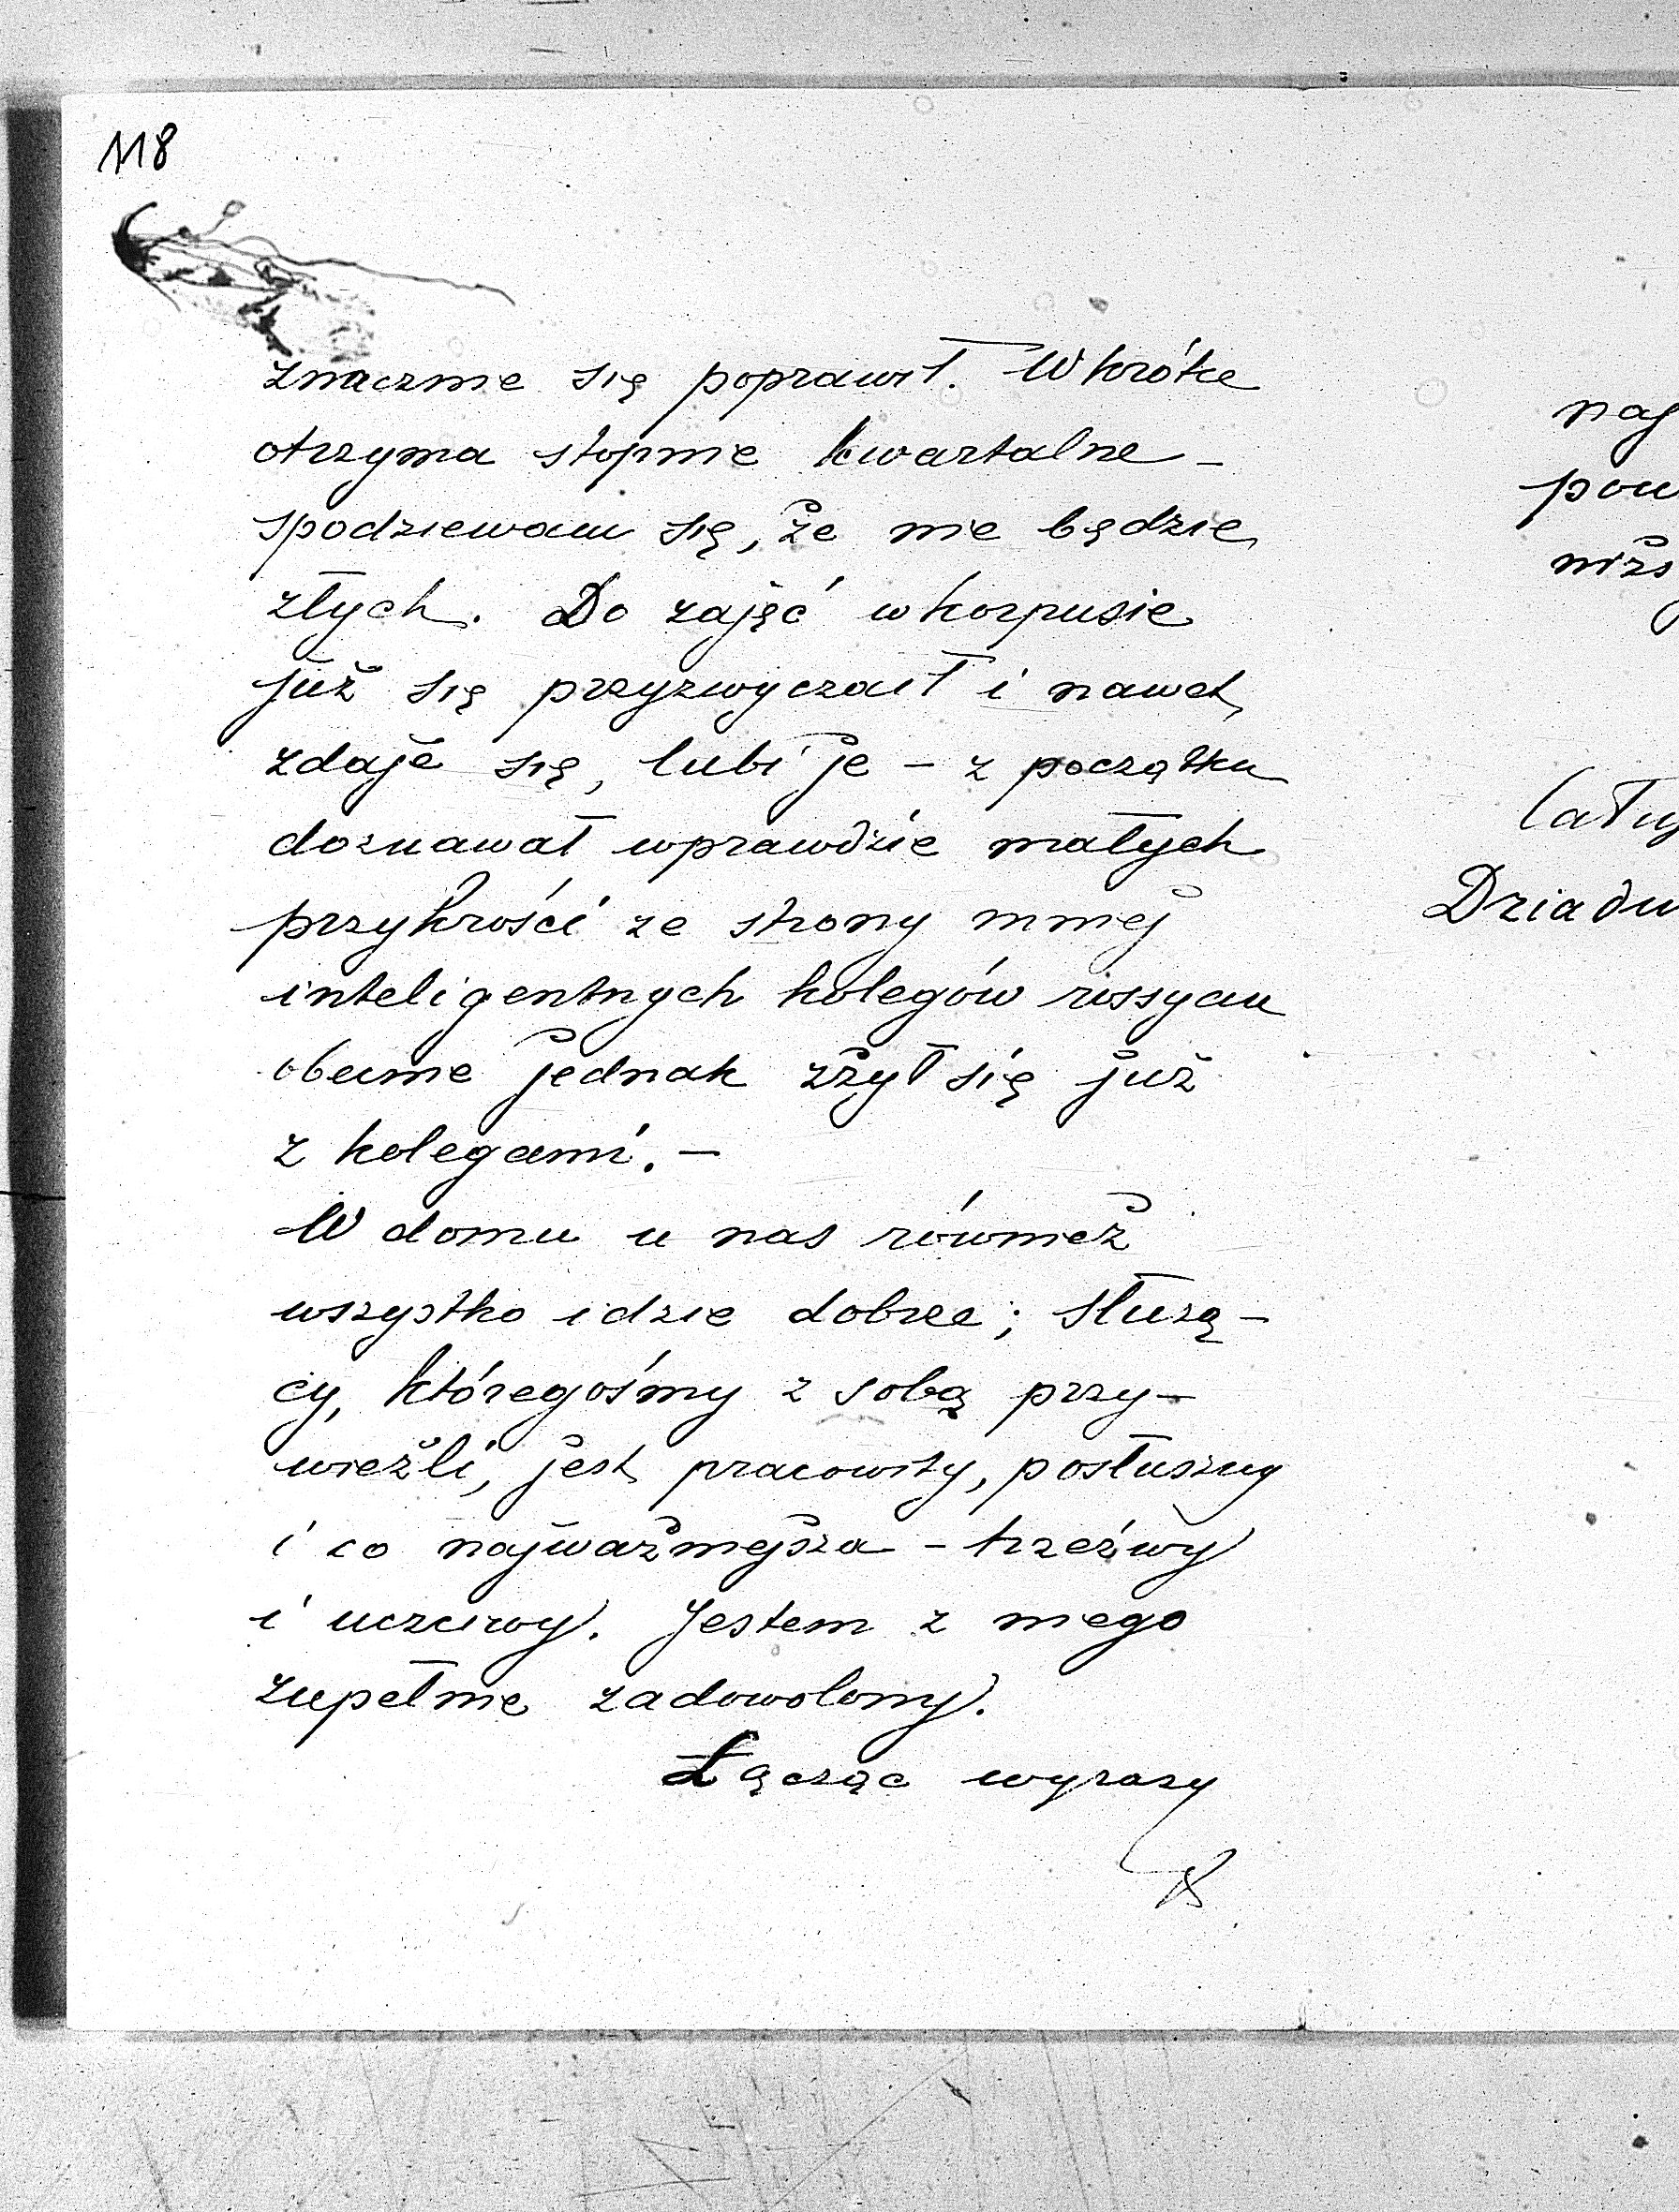 118
znacznie się poprawił. Wkrótce
otrzyma stopnie kwartalne –
spodziewam się, że nie będzie
złych. Do zajęć w korpusie
już się przyzwyczaił i nawet,
zdaje się, lubi je – z początku
doznawał wprawdzie małych
przykrości ze strony mniej
inteligentnych kolegów rossyan
obecnie jednak zżył się już
z kolegami. –
W domu u nas również
wszystko idzie dobrze; służą-
cy, któregośmy z sobą przy-
wieźli, jest pracowity, posłuszny
i co najważniejsza – trzeźwy
i uczciwy. Jestem z niego
zupełnie zadowolony.
Łącząc wyrazy
naj
pow
niżs
Cału
Dziadu